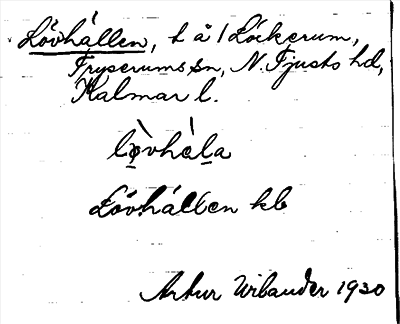 Lövhállen, t å /Löckerum,
Fryserums sn, N. Tjusts hd,
Kalmar l.
lø̀vhàla
Lövhállen kb
Artur Wilander 1930